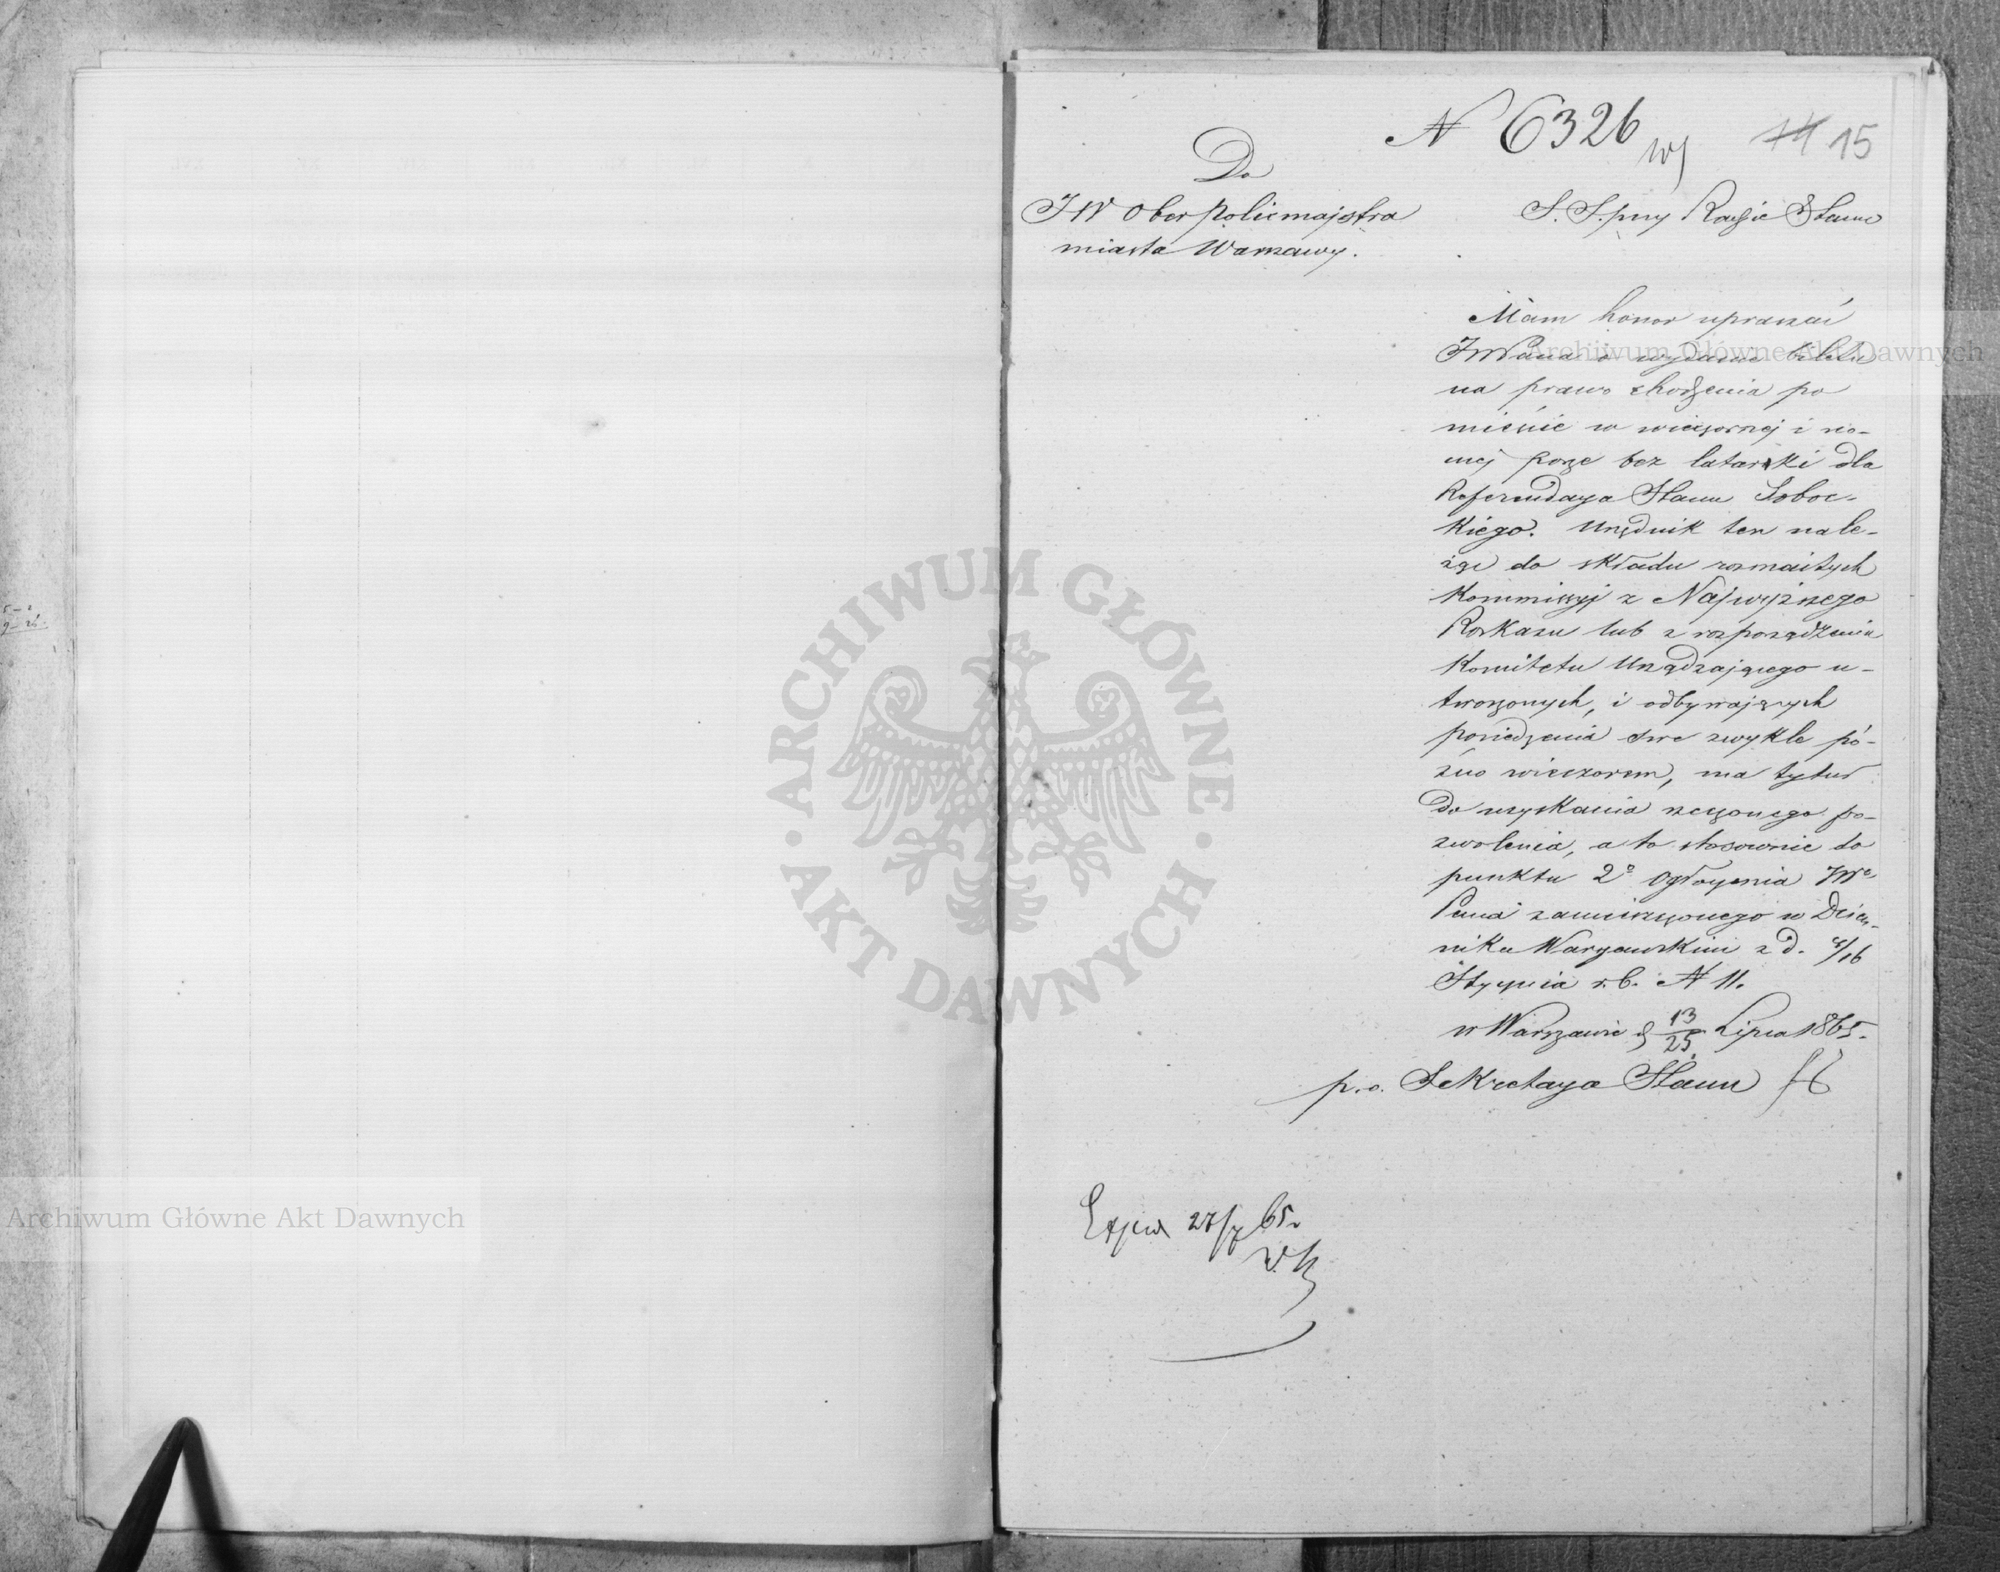 N 6326
14 15
Do
JW Oberpolicmajstra
miasta Warszawy.
S. S. przy Radzie Stanu
Mam honor upraszać
JWPana o wydanie biletu
na prawo chodzenia po
mieście w wieczornej i no-
cnej porze bez latarki dla
Referendarza Stanu Soboc-
kiego. Urzędnik ten nale-
żąc do składu rozmaitych
Kommissyj z Najwyższego
Rozkazu lub z rozporządzenia
Komitetu Urządzającego u-
tworzonych, i odbywających
posiedzenia swe zwykle pó-
źno wieczorem, ma tytuł
do uzyskania rzeczonego po-
zwolenia, a to stosownie do
punktu 2º ogłoszenia JW
Pana zamieszczonego w Dzien-
niku Warszawskim z d. 4/16
Stycznia r. b. N 11.
w Warszawie d 13/25 Lipca 1865.
p.o. Sekretarza Stanu
27/7 65.
Archiwum Główne Akt Dawnych
Archiwum Główne Akt Dawnych
· ARCHIWUM GŁÓWNE · AKT DAWNYCH